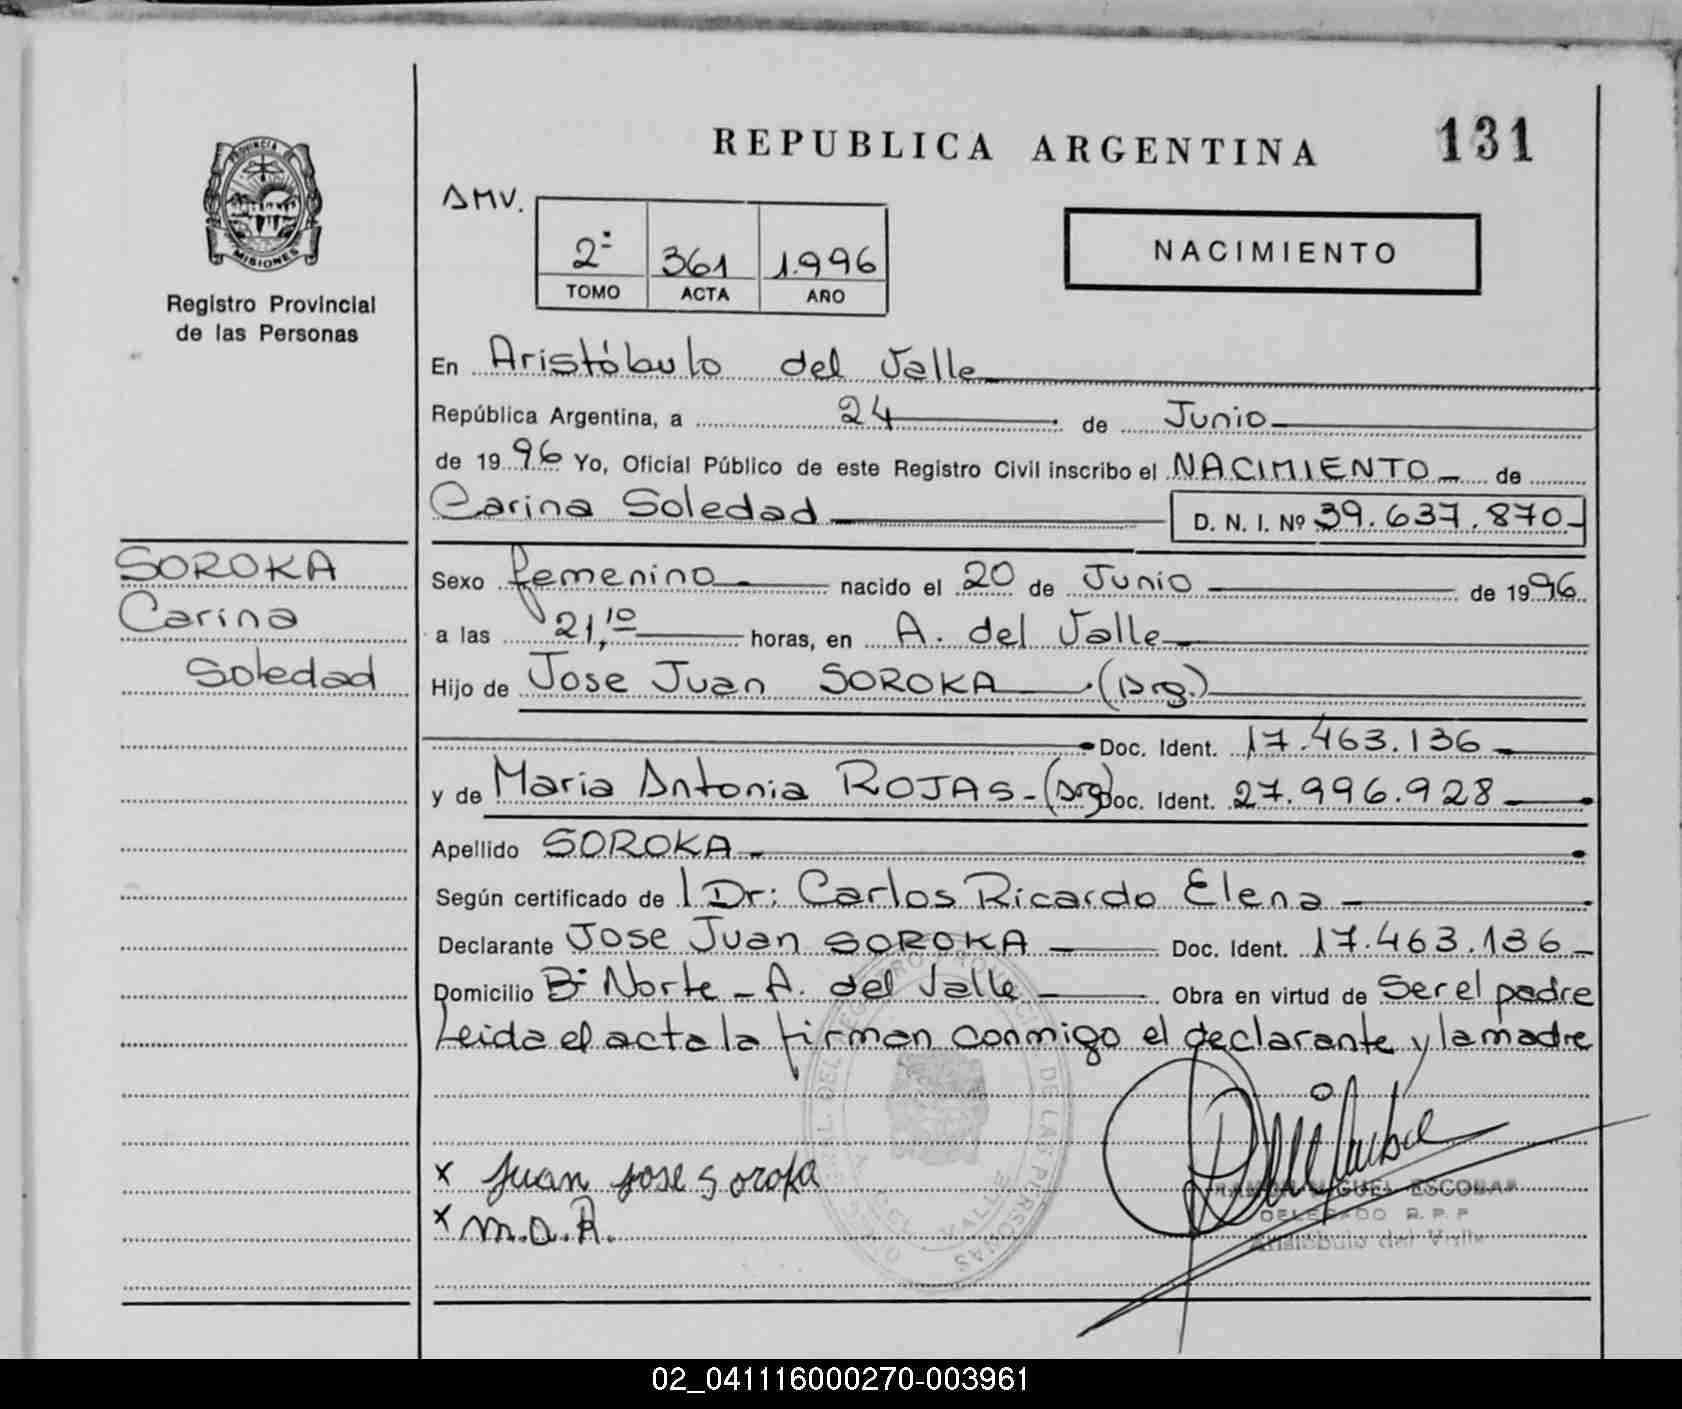 REPUBLICA ARGENTINA
131
PROVINCIA DE
MISIONES
Registro Provincial
de las Personas
AMV.
2º 361 1.996
TOMO ACTA AÑO
NACIMIENTO
En Aristóbulo del Valle
República Argentina, a 24 de Junio
de 1996 Yo, Oficial Público de este Registro Civil inscribo el NACIMIENTO de
Carina Soledad D. N. I. Nº 39.637.870-
SOROKA
Carina
Soledad
Sexo femenino nacido el 20 de Junio de 1996
a las 21,10 horas, en A. del Valle
Hijo de Jose Juan SOROKA (Arg.)
Doc. Ident. 17.463.136
y de Maria Antonia ROJAS - (Arg) Doc. Ident. 27.996.928
Apellido SOROKA
Según certificado de l Dr: Carlos Ricardo Elena
Declarante Jose Juan SOROKA Doc. Ident. 17.463.136
Domicilio Bº Norte - A. del Valle Obra en virtud de Ser el padre
Leida el acta la firman conmigo el declarante y la madre
x Juan Jose Soroka
x m.a.R.
RAMON MIGUEL ESCOBAR
DELEGADO R. P. P
Aristóbulo del Valle
02_041116000270-003961